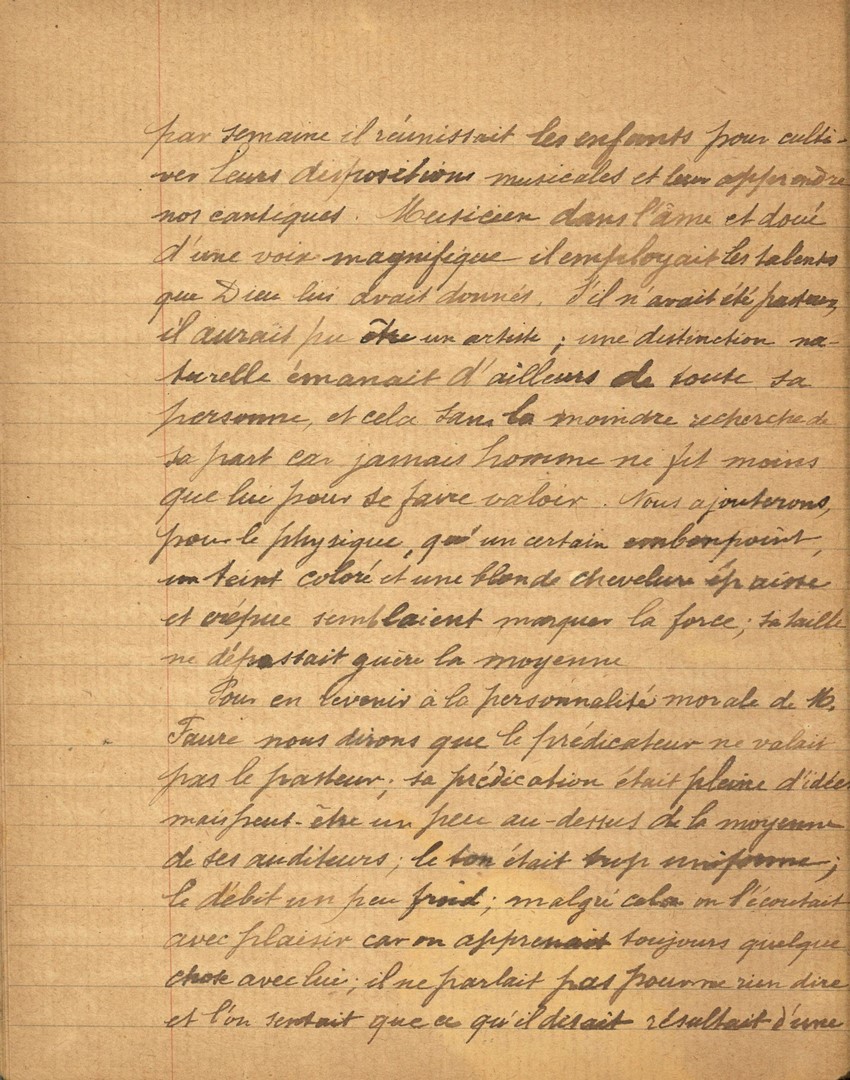 par semaine il réunissait les enfants pour culti-
ver leurs dispositions musicales et leur apprendre
nos cantiques. Musicien dans l'âme et doué
d'une voix magnifique il employait les talents
que Dieu lui avait donnés. S'il n'avait été pasteur,
il aurait pu être un artiste ; une distinction na-
turelle émanait d'ailleurs de toute sa
personne, et cela sans la moindre recherche de
sa part car jamais homme ne fit moins
que lui pour se faire valoir. Nous ajouterons,
pour le physique, qu'un certain embonpoint,
un teint coloré et une blonde chevelure épaisse
et crépue semblaient marquer la force ; sa taille
ne dépassait guère la moyenne
Pour en revenir à la personnalité morale de M.
Faure nous dirons que le prédicateur ne valait
pas le pasteur ; sa prédication était pleine d'idée
mais peut-être un peu au-dessus de la moyenne
de ses auditeurs ; le ton était trop uniforme ;
le débit un peu froid ; malgré cela on l'écoutait
avec plaisir car on apprenait toujours quelque
chose avec lui ; il ne parlait pas pour ne rien dire
et l'on sentait que ce qu'il disait résultait d'une